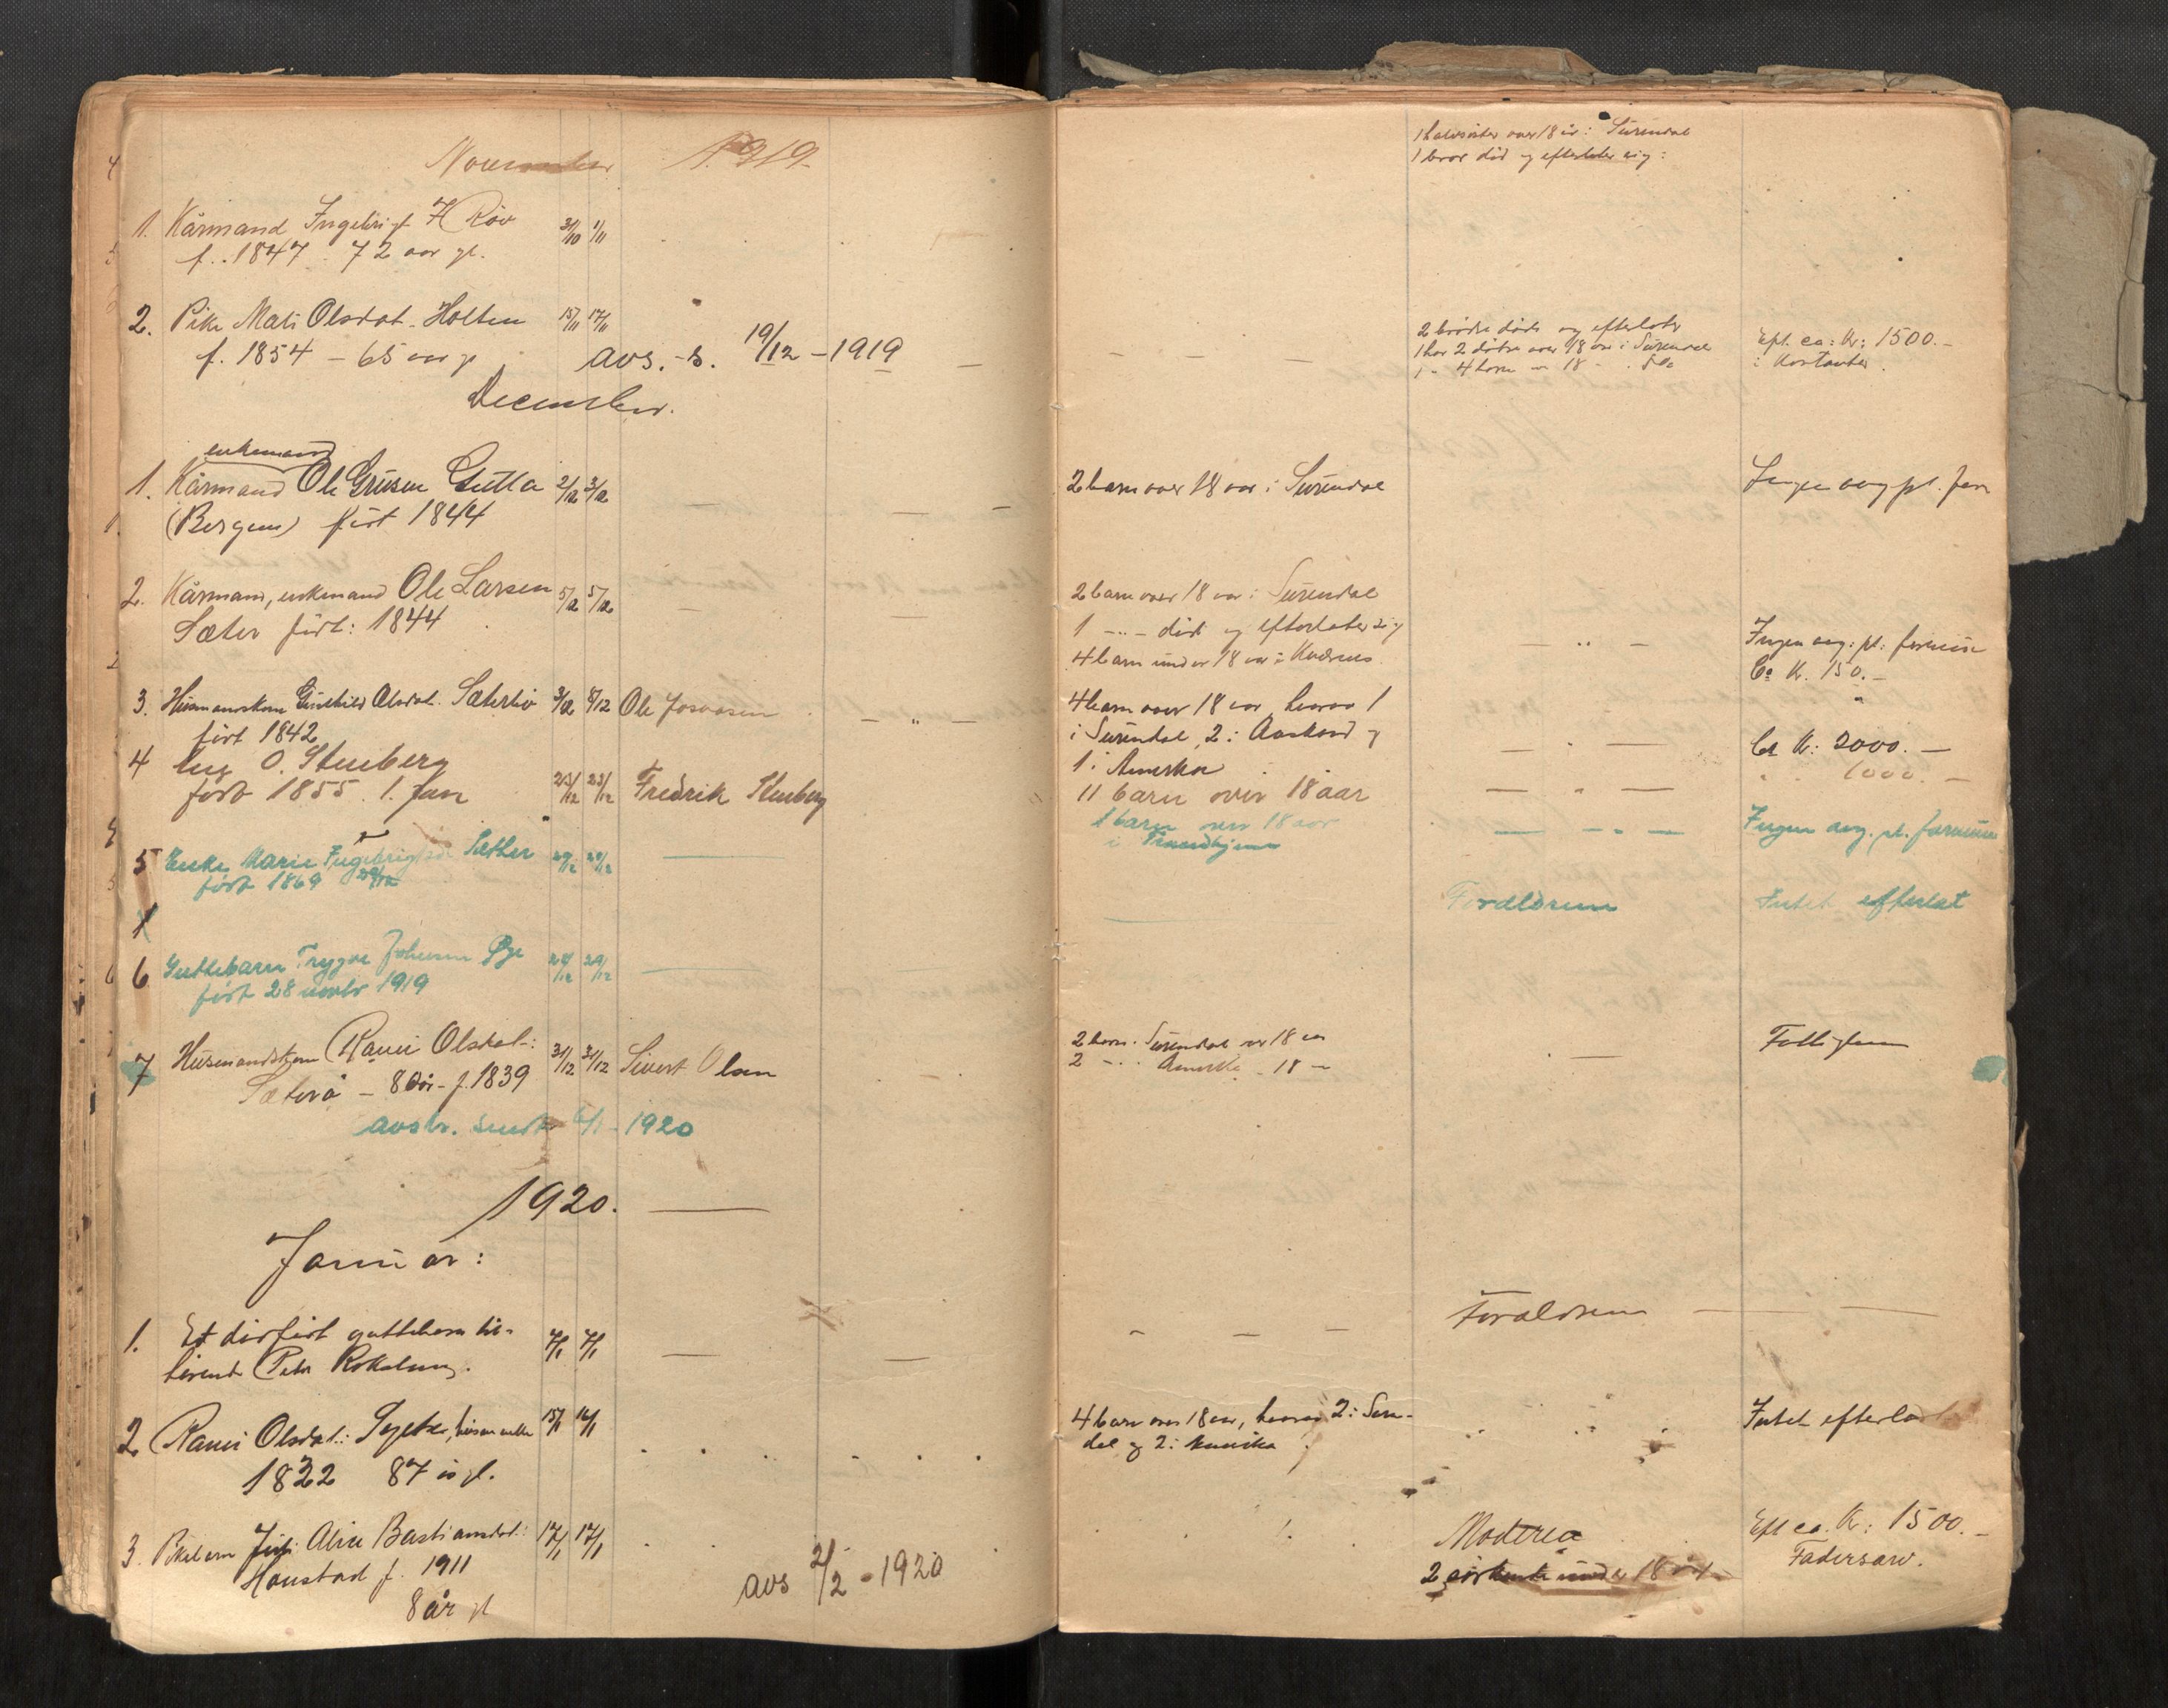 November 1919.
1 halvsøster over 18 år i Surendal
1 bror død og efterlater sig:
1. Kårmand Ingebrigt H Røv 31/10 1/11
f. 1847. 72 aar gl.
2. Pike Mali Olsdat. Holten 15/11 17/11
f. 1854 – 65 aar gl
avs. - s. 19/12 – 1919
2 brødre døde og efterlater
1 har 2 døtre over 18 aar i Surendal
1 " 4 barn " 18
Eft. ca: Kr: 1500.–
i Kontanter.
December.
enkemand
1. Kårmand Ole Larsen Gulla 2/12 3/12
(Bergem) født 1844
2 barn over 18 aar i Surendal
Ingen avg. pl. form
2. Kårmand, enkemand Ole Larsen 5/12 5/12
Sæter født: 1844
2 barn over 18 aar i Surendal
1 –"– død og efterlater sig
4 barn under 18 aar i
Ingen avg: pl: formue
Ca Kr. 150.–
3. Husmandskone Gunhild Olsdat. Sæterbø 3/12 8/12 Ole
født 1842
4 barn over 18 aar hvorav 1
i Surendal, 2 i Aaskard og
1 i Amerika
Ca Kr: 2000.–
1000.–
4 O. Stenberg
født 1855 1. Jan 23/12 23/12 Fredrik Stenberg
11 barn over 18 aar
5 Enke Marie Ingebrigtsd Sæther 29/12
født 1869 29/12
1 barn over 18 aar
i Trondhjem
Ingen avg. pl. formue
Forældrene
Intet efterlat
6 Guttebarn Trygve Johansen Øye 29/12 29/12
født 28 novbr 1919
7 Husmandskone Rauni Olsdat: 31/12 31/12 Sivert Olsen
Sæterø – 80 år – f. 1839
2 barn i Surendal over 18 aar
2 –"– Amerika – 18 –
Fattiglem
avskr. sendt 6/1 – 1920
1920.
Januar:
1. Et dødfødt guttebarn til- 7/1 7/1
hørende Peter Rokslund.
Forældrene
2. Rauni Olsdat: 15/1 16/1
1832 87 år gl.
4 barn over 18 aar, hvorav 2 i Suren-
dal og 2 i Amerika
Intet efterladt
3. Pikebarn Alise Bastiansdat: 17/1 17/1
Haustad f. 1911
8 år gl
avs 2/2 – 1920
Moderen
2 søskende under 18 år
Eft ca. Kr: 1500.–
Fadersarv.